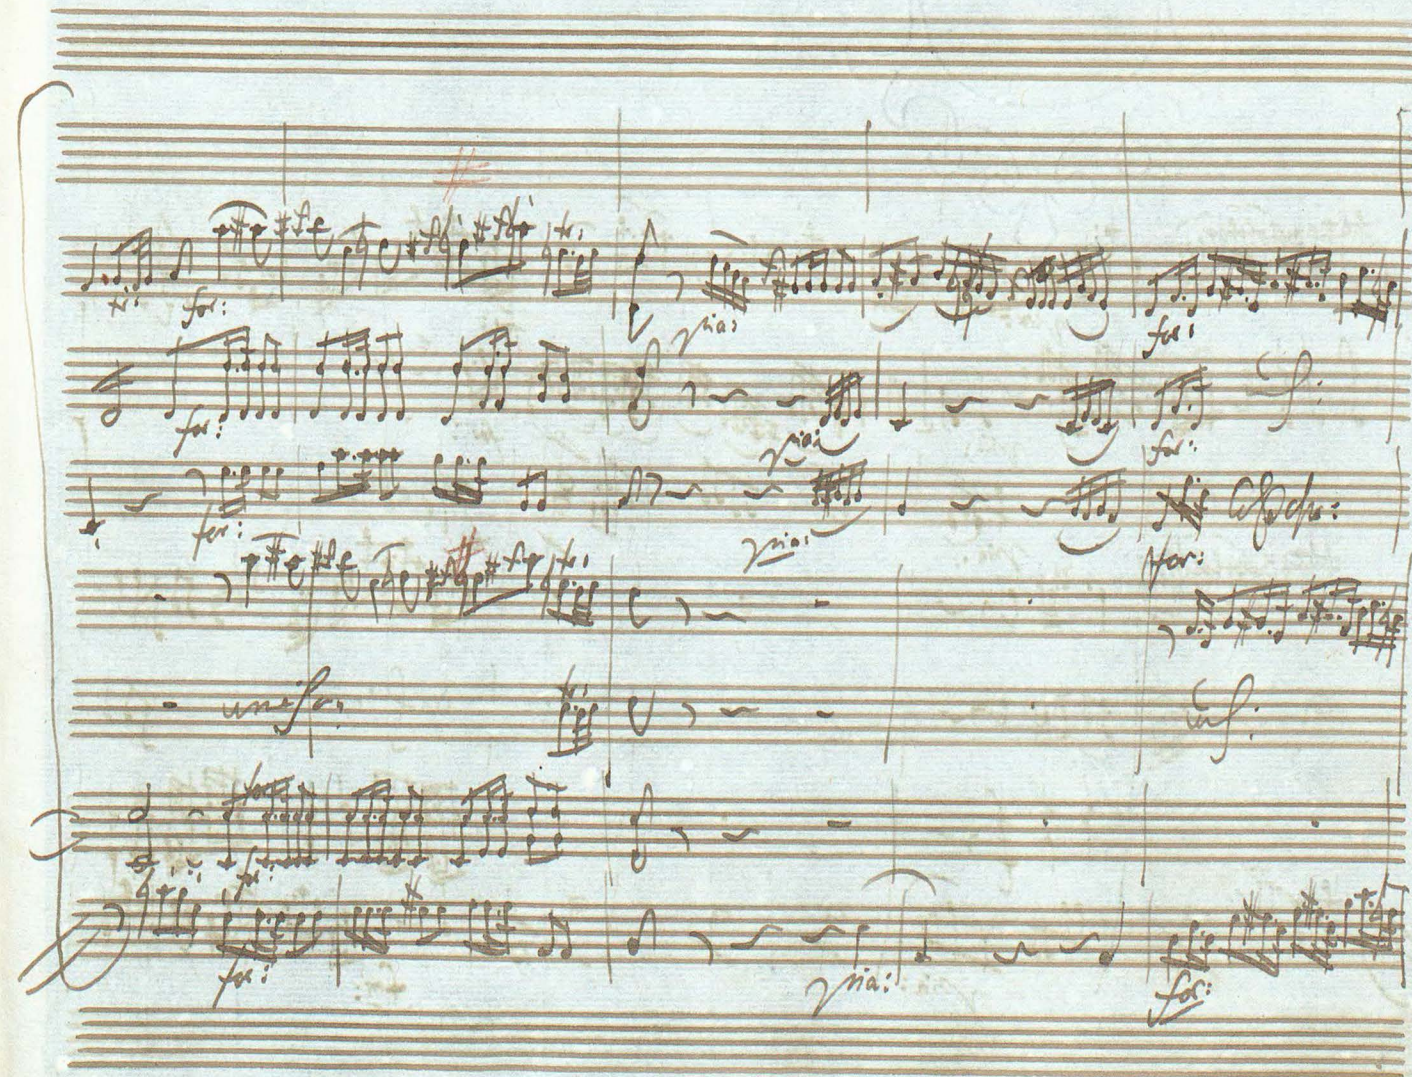 tr: tr:
for: pia: for:
for: pia: for:
for: pia: for:
tr:
tr:
unis:
for:
for:
for: pia: for: